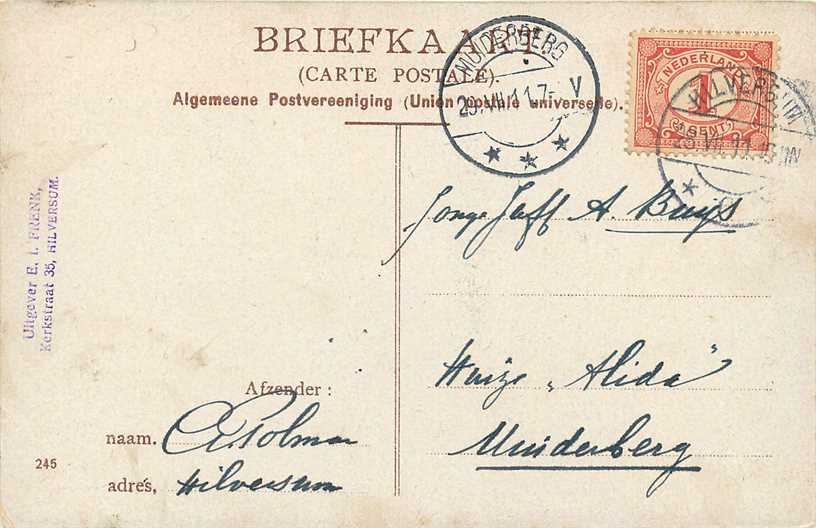 BRIEFKAART
(CARTE POSTALE).
Algemeene Postvereeniging (Union postale universelle).
MUIDERBERG
29.VII.11.7- V
NEDERLAND
1
CENT
HILVERSUM
Uitgever E. I. FRENK,
Kerkstraat 35, HILVERSUM.
Jonge Juff A. Buys
Huize „Alida"
Muiderberg
Afzender:
naam.
adres, Hilversum
245